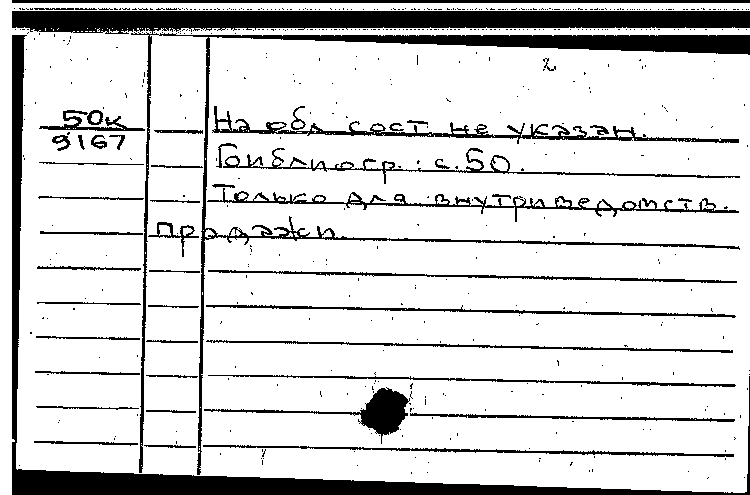 2
50к
9167
На обл сост не указан.
Библиогр.: с.50.
Только для внутриведомств.
продажи.